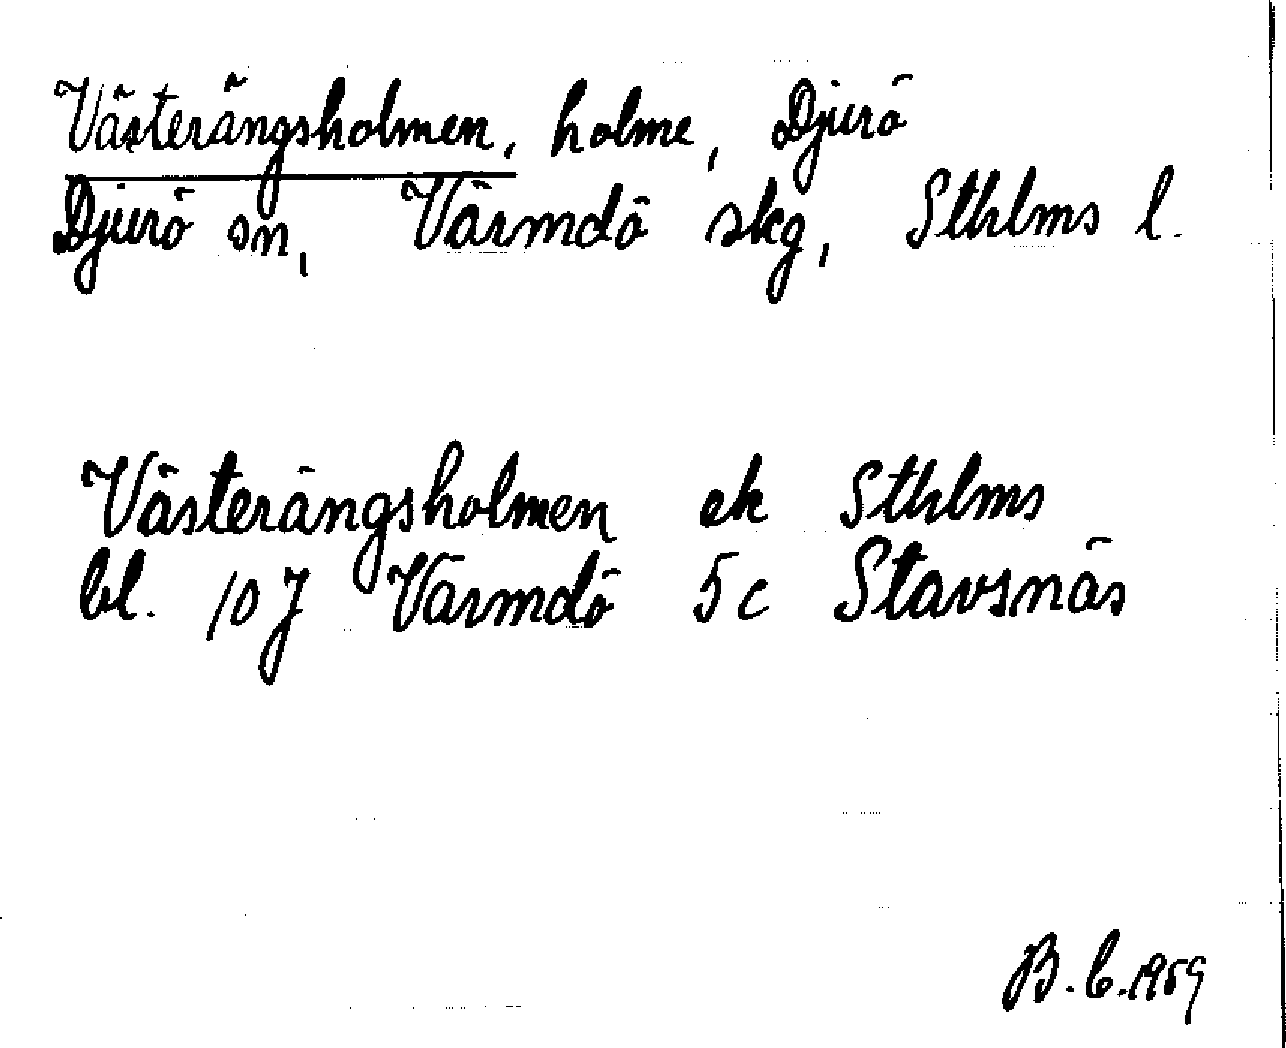 Västerängsholmen, holme, Djurö
Djurö sn, Värmdö skg, Sthlms l.
Västerängsholmen ek Sthlms
bl. 10 J Värmdö 5 c Stavsnäs
B. C. 1959